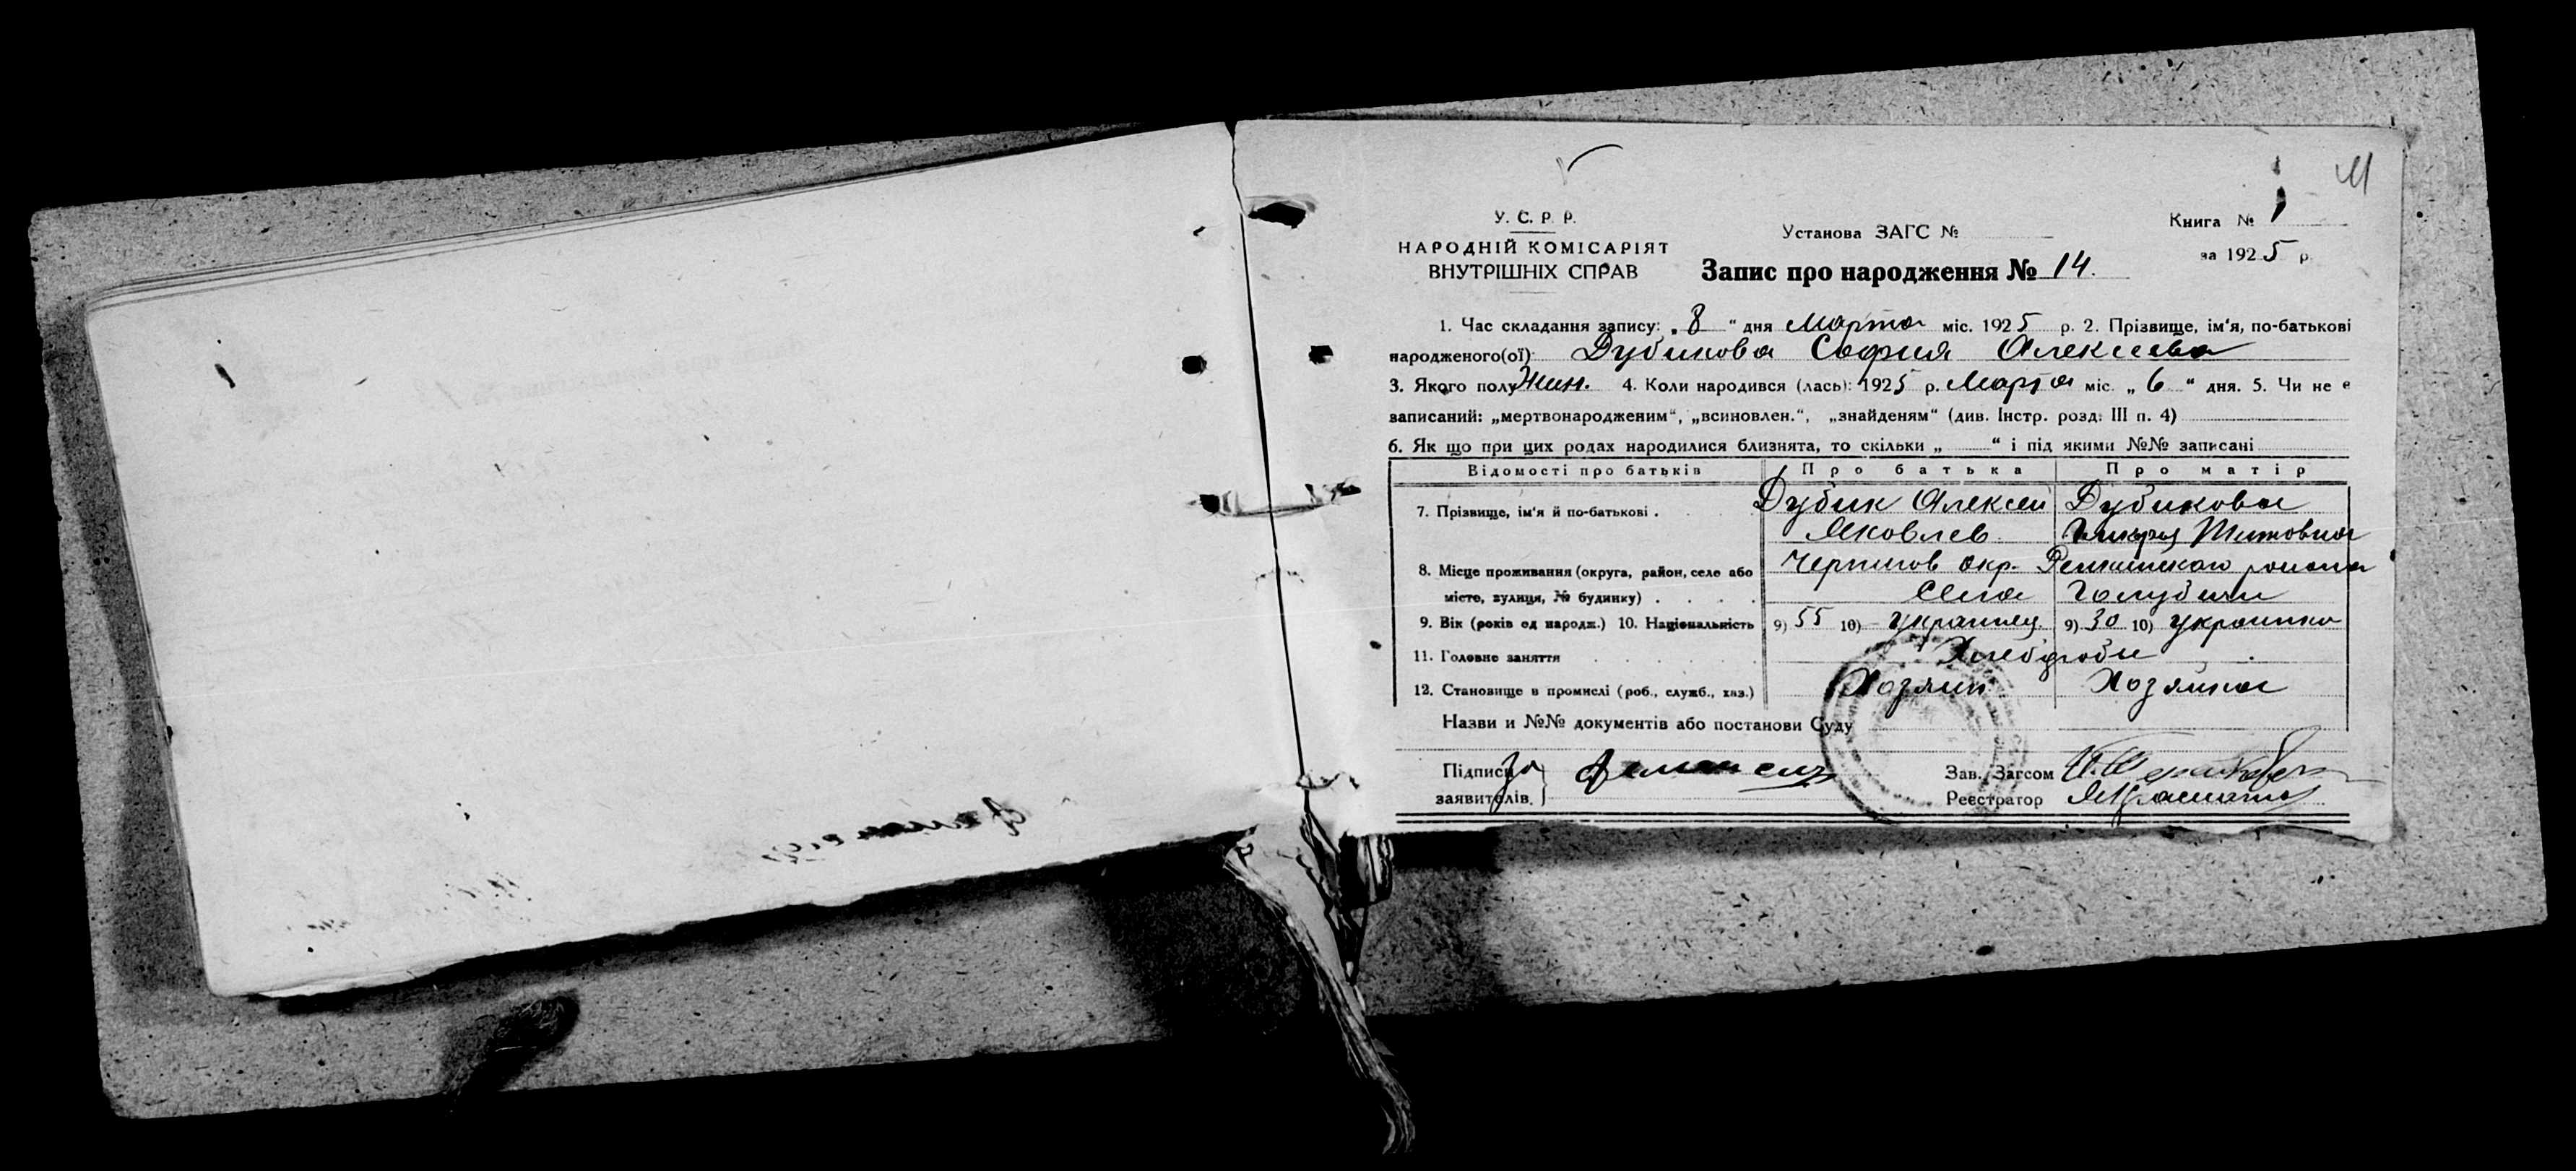 И
У. С. Р. Р.
НАРОДНІЙ КОМІСАРІЯТ
ВНУТРІШНІХ СПРАВ
Установа ЗАГС №
Книга № 1
за 1925 р.
Запис про народження № 14.
1. Час складання запису: „8“ дня Марта міс. 1925 р. 2. Прізвище, ім'я, по-батькові
народженого(ої) Дубикова София Алексеева
3. Якого полу Жин. 4. Коли народився (лась): 1925 р. Марта міс. „6“ дня. 5. Чи не є
записаний: „мертвонародженим“, „всиновлен.“, „знайденям“ (див. Інстр. розд. III п. 4)
6. Як що при цих родах народилися близнята, то скільки „ “ і під якими №№ записані
Відомості про батьків Про батька Про матір
7. Прізвище, ім'я й по-батькові . Дубик Алексей Дубикова
Яковлев Титовна
8. Місце проживання (округа, район, селе або Чернигов окр. Репкинского района
місто, вулиця, № будинку) . . . . Села Голубичи
9. Вік (років од народж.) 10. Національність 9) 55 10) Украинец 9) 30 10) украинка
11. Головне заняття Хлебороби
12. Становище в промислі (роб., служб., хаз.) Хозяин Хозяйка
Назви и №№ документів або постанови Суду
Підписи
заявителів.
Зав. Загсом
Реєстратор